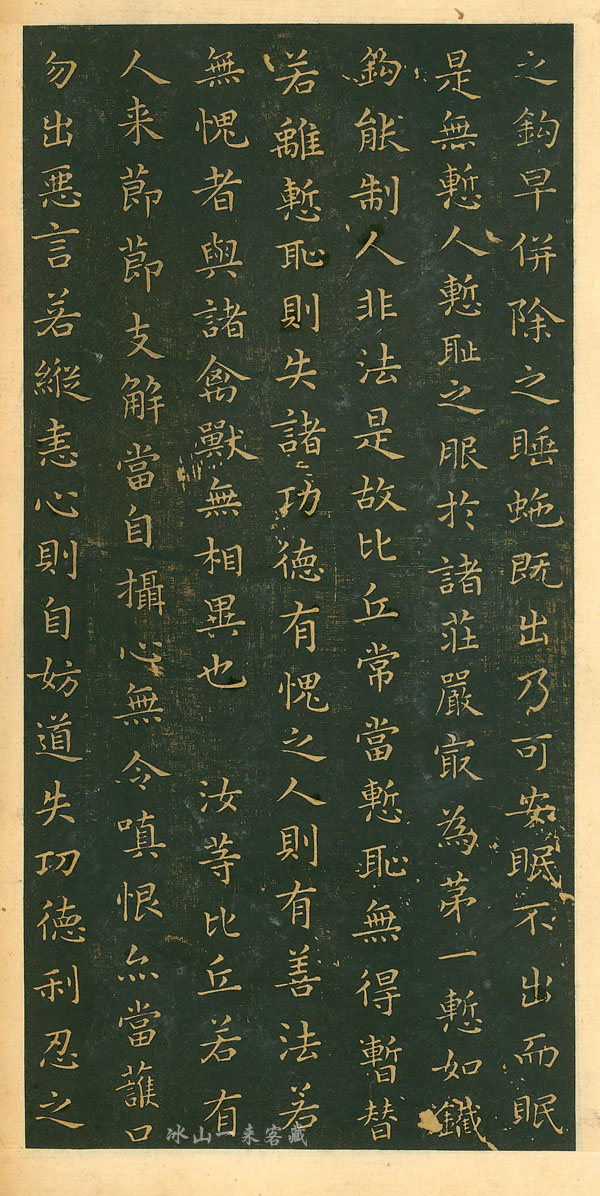 之鈎早併除之睡虵既出乃可安眠不出而眠
是無慙人慙耻之服於諸莊嚴㝡為苐一慙如鐵
鈎能制人非法是故比丘常當慙恥無得暫替
若離慙恥則失諸功德有愧之人則有善法若
無愧者與諸禽獸無相異也 汝等比丘若有
人来節節支解當自攝心無令嗔恨亦當護口
勿出惡言若縱恚心則自妨道失功德利忍之
冰山一来客藏